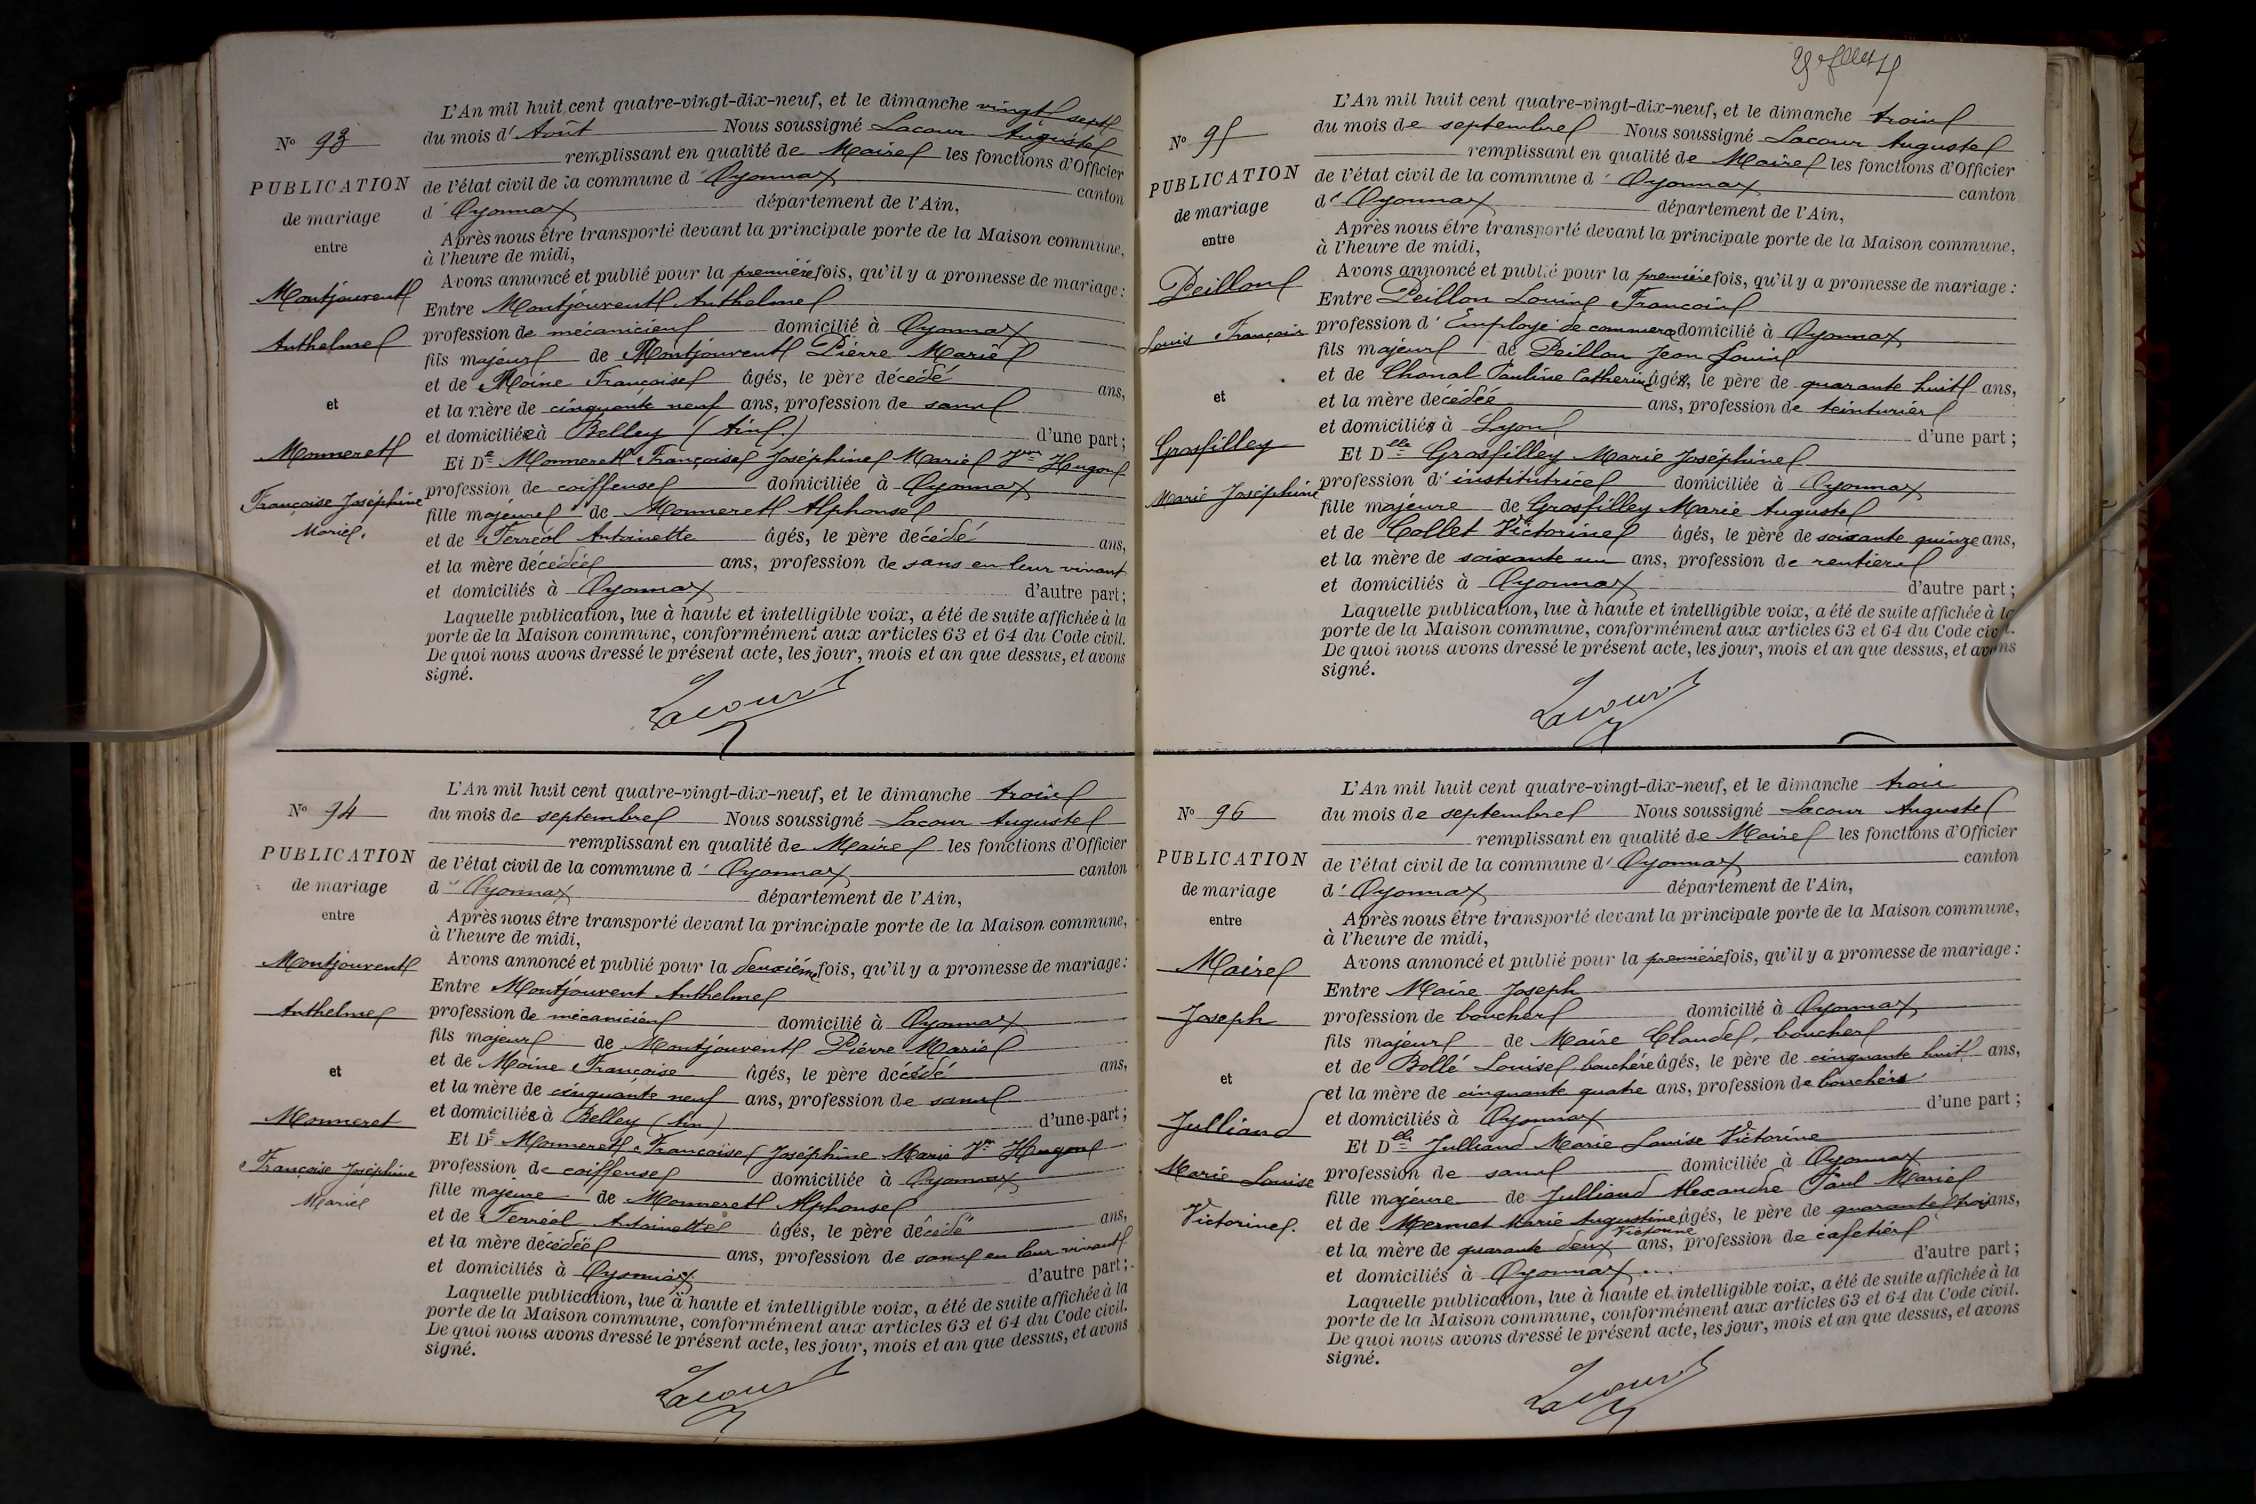 L'An mil huit cent quatre-vingt-dix-neuf, et le dimanche vingt sept
du mois d' Août Nous soussigné Lacour Auguste
remplissant en qualité de Maire les fonctions d'Officier
de l'état civil de la commune d' Oyonnax canton
d' Oyonnax département de l'Ain,
Après nous être transporté devant la principale porte de la Maison commune,
à l'heure de midi,
Avons annoncé et publié pour la première fois, qu'il y a promesse de mariage :
Entre Montjouvent Anthelme
profession de mécanicien domicilié à Oyonnax
fils majeur de Montjouvent Pierre Marie
et de Moine Françoise âgés, le père décédé ans,
et la mère de cinquante neuf ans, profession de sans
et domiciliée à Belley (Ain) d'une part ;
Et De Monneret Françoise Joséphine Marie Vve Hugon
profession de coiffeuse domiciliée à Oyonnax
fille majeure de Monneret Alphonse
et de Ferréol Antoinette âgés, le père décédé ans,
et la mère décédée ans, profession de sans en leur vivant
et domiciliés à Oyonnax d'autre part ;
Laquelle publication, lue à haute et intelligible voix, a été de suite affichée à la
porte de la Maison commune, conformément aux articles 63 et 64 du Code civil.
De quoi nous avons dressé le présent acte, les jour, mois et an que dessus, et avons
signé.
Lacour
No 93
PUBLICATION
de mariage
entre
Montjouvent
Anthelme
et
Monneret
Françoise Joséphine
Marie.
L'An mil huit cent quatre-vingt-dix-neuf, et le dimanche trois
du mois de septembre Nous soussigné Lacour Auguste
remplissant en qualité de Maire les fonctions d'Officier
de l'état civil de la commune d' Oyonnax canton
d' Oyonnax département de l'Ain,
Après nous être transporté devant la principale porte de la Maison commune,
à l'heure de midi,
Avons annoncé et publié pour la deuxième fois, qu'il y a promesse de mariage :
Entre Montjouvent Anthelme
profession de mécanicien domicilié à Oyonnax
fils majeur de Montjouvent Pierre Marie
et de Moine Françoise âgés, le père décédé ans,
et la mère de cinquante neuf ans, profession de sans
et domiciliée à Belley (Ain) d'une part ;
Et De Monneret Françoise Joséphine Marie Vve Hugon
profession de coiffeuse domiciliée à Oyonnax
fille majeure de Monneret Alphonse
et de Ferréol Antoinette âgés, le père décédé ans,
et la mère décédée ans, profession de sans en leur vivant
et domiciliés à Oyonnax d'autre part ;
Laquelle publication, lue à haute et intelligible voix, a été de suite affichée à la
porte de la Maison commune, conformément aux articles 63 et 64 du Code civil.
De quoi nous avons dressé le présent acte, les jour, mois et an que dessus, et avons
signé.
Lacour
No 94
PUBLICATION
de mariage
entre
Montjouvent
Anthelme
et
Monneret
Françoise Joséphine
Marie
L'An mil huit cent quatre-vingt-dix-neuf, et le dimanche trois
du mois de septembre Nous soussigné Lacour Auguste
remplissant en qualité de Maire les fonctions d'Officier
de l'état civil de la commune d' Oyonnax canton
d' Oyonnax département de l'Ain,
Après nous être transporté devant la principale porte de la Maison commune,
à l'heure de midi,
Avons annoncé et publié pour la première fois, qu'il y a promesse de mariage :
Entre Peillon Louis François
profession d' Employé de commerce domicilié à Oyonnax
fils majeur de Peillon Jean Louis
et de Chonal Pauline Catherine âgés, le père de quarante huit ans,
et la mère décédée ans, profession de teinturier
et domiciliés à Lyon d'une part ;
Et Delle Grosfilley Marie Joséphine
profession d' institutrice domiciliée à Oyonnax
fille majeure de Grosfilley Marie Auguste
et de Collet Victorine âgés, le père de soixante quinze ans,
et la mère de soixante un ans, profession de rentiers
et domiciliés à Oyonnax d'autre part ;
Laquelle publication, lue à haute et intelligible voix, a été de suite affichée à la
porte de la Maison commune, conformément aux articles 63 et 64 du Code civil.
De quoi nous avons dressé le présent acte, les jour, mois et an que dessus, et avons
signé.
Lacour
No 95
PUBLICATION
de mariage
entre
Peillon
Louis François
et
Grosfilley
Marie Joséphine
L'An mil huit cent quatre-vingt-dix-neuf, et le dimanche trois
du mois de septembre Nous soussigné Lacour Auguste
remplissant en qualité de Maire les fonctions d'Officier
de l'état civil de la commune d' Oyonnax canton
d' Oyonnax département de l'Ain,
Après nous être transporté devant la principale porte de la Maison commune,
à l'heure de midi,
Avons annoncé et publié pour la première fois, qu'il y a promesse de mariage :
Entre Maire Joseph
profession de boucher domicilié à Oyonnax
fils majeur de Maire Claude, boucher
et de Bollé Louise bouchère âgés, le père de cinquante huit ans,
et la mère de cinquante quatre ans, profession de bouchers
et domiciliés à Oyonnax d'une part ;
Et Delle Julliand Marie Louise Victorine
profession de sans domiciliée à Oyonnax
fille majeure de Julliand Alexandre Paul Marie
et de Mermet Marie Augustine Victorine âgés, le père de quarante trois ans,
et la mère de quarante deux ans, profession de cafetier
et domiciliés à Oyonnax d'autre part ;
Laquelle publication, lue à haute et intelligible voix, a été de suite affichée à la
porte de la Maison commune, conformément aux articles 63 et 64 du Code civil.
De quoi nous avons dressé le présent acte, les jour, mois et an que dessus, et avons
signé.
Lacour
No 96
PUBLICATION
de mariage
entre
Maire
Joseph
et
Julliand
Marie Louise
Victorine.